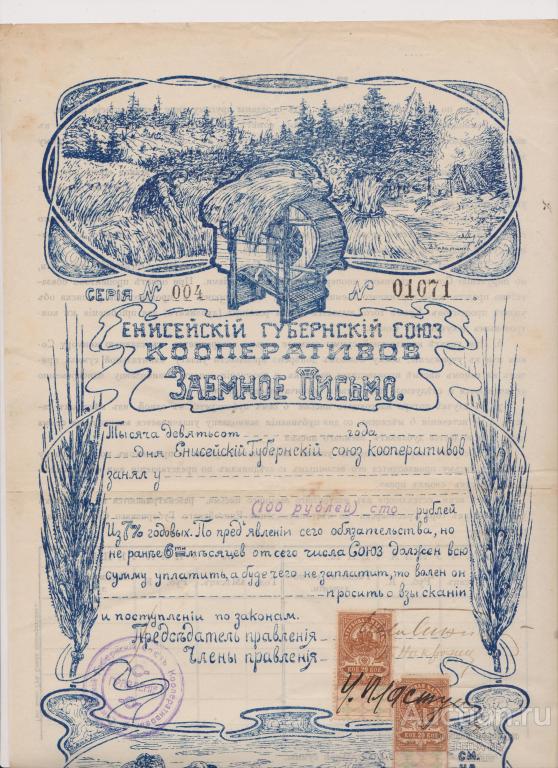 СЕРІЯ № 004 № 01071
ЕНИСЕЙСКІЙ ГУБЕРНСКІЙ СОЮЗ
КООПЕРАТИВОВ
ЗАЕМНОЕ ПИСЬМО.
Тысяча девятьсот года
дня Енисейскій Губернскій союз кооперативов
занял у
(100 рублей) сто рублей
Из 7% годовых. По пред'явленіи сего обязательства, но
не ранѣе 6ти мѣсяцев от сего числа Союз должен всю
сумму уплатить, а буде чего не заплатит, то волен он
просить о взысканіи
и поступленіи по законам.
Предсѣдатель правленія
Члены правленія
КОП. 20 КОП.
КОП. 20 КОП.
Auction.ru
СМ.